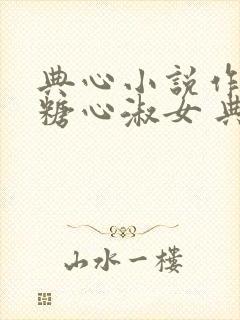 典心小说作
糖心淑女 典
山水一楼